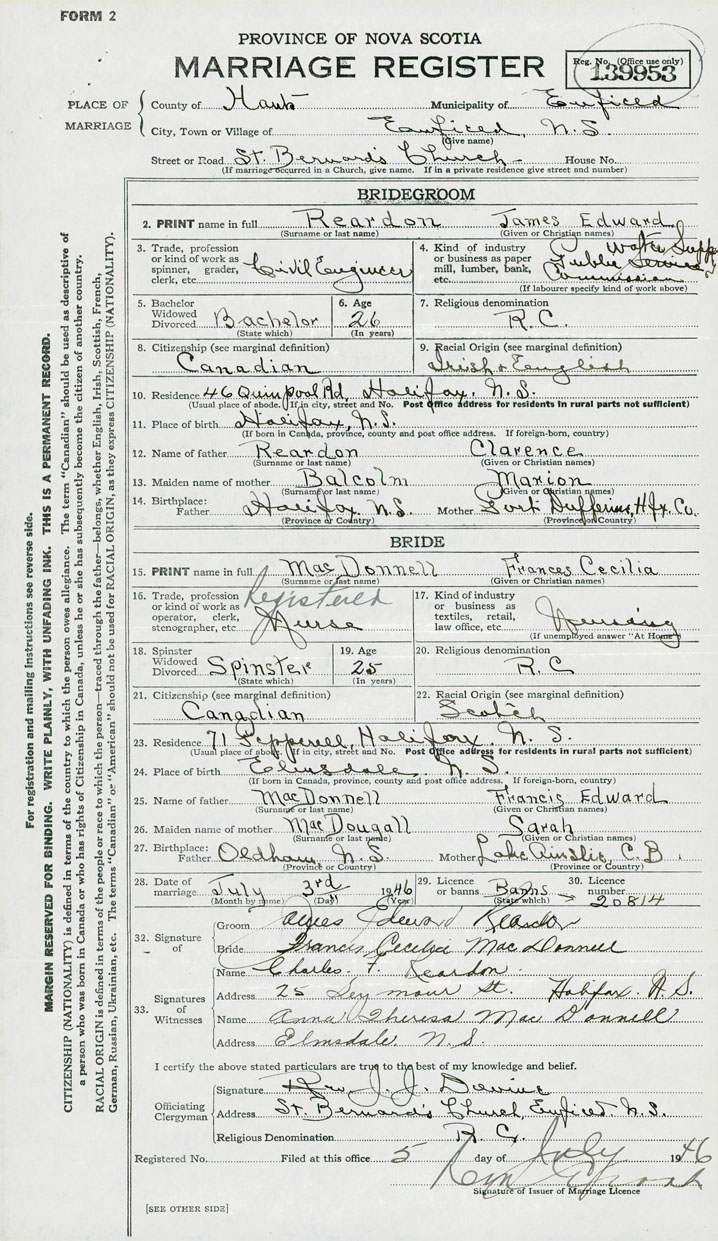 FORM 2
PROVINCE OF NOVA SCOTIA
MARRIAGE REGISTER
Reg. No. (Office use only)
139953
PLACE OF MARRIAGE
County of Hants Municipality of Enfield
City, Town or Village of Enfield, N.S.
(Give name)
Street or Road St. Bernard's Church - House No.
(If marriage occurred in a Church, give name. If in a private residence give street and number)
BRIDEGROOM
2. PRINT name in full Reardon James Edward
(Surname or last name) (Given or Christian names)
3. Trade, profession or kind of work as spinner, grader, clerk, etc. Civil Engineer
4. Kind of industry or business as paper mill, lumber, bank, etc. Water Supply Public Service Commission
(If labourer specify kind of work above)
5. Bachelor Widowed Divorced Bachelor
(State which)
6. Age 26
(In years)
7. Religious denomination
R.C.
8. Citizenship (see marginal definition)
Canadian
9. Racial Origin (see marginal definition)
Irish & English
10. Residence 46 Quinpool Rd, Halifax, N.S.
(Usual place of abode. If in city, street and No. Post Office address for residents in rural parts not sufficient)
11. Place of birth Halifax, N.S.
(If born in Canada, province, county and post office address. If foreign-born, country)
12. Name of father Reardon Clarence
(Surname or last name) (Given or Christian names)
13. Maiden name of mother Balcolm Marion
(Surname or last name) (Given or Christian names)
14. Birthplace: Father Halifax N.S. Mother Port Dufferin, Hfx. Co.
(Province or Country) (Province or Country)
BRIDE
15. PRINT name in full MacDonnell Frances Cecilia
(Surname or last name) (Given or Christian names)
16. Trade, profession or kind of work as operator, clerk, stenographer, etc. Registered Nurse
17. Kind of industry or business as textiles, retail, law office, etc. Nursing
(If unemployed answer "At Home")
18. Spinster Widowed Divorced Spinster
(State which)
19. Age 25
(In years)
20. Religious denomination
R.C
21. Citizenship (see marginal definition)
Canadian
22. Racial Origin (see marginal definition)
Scotch
23. Residence 71 Pepperell, Halifax, N.S.
(Usual place of abode. If in city, street and No. Post Office address for residents in rural parts not sufficient)
24. Place of birth Elmsdale, N.S.
(If born in Canada, province, county and post office address. If foreign-born, country)
25. Name of father MacDonnell Francis Edward
(Surname or last name) (Given or Christian names)
26. Maiden name of mother MacDougall Sarah
(Surname or last name) (Given or Christian names)
27. Birthplace: Father Oldham, N.S. Mother Lake Ainslie, C.B.
(Province or Country) (Province or Country)
28. Date of marriage July 3rd 1946
(Month by name) (Day)
29. Licence or banns Banns
(State which)
30. Licence number 20814
32. Signature of
Groom James Edward Reardon
Bride Francis Cecilia MacDonnell
33. Signatures of Witnesses
Name Charles F. Reardon
Address 25 Seymour St. Halifax. N.S.
Name Anna Theresa MacDonnell
Address Elmsdale N.S.
I certify the above stated particulars are true to the best of my knowledge and belief.
Officiating Clergyman
Signature Rev. J. J. Devine
Address St. Bernard's Church, Enfield. N.S.
Religious Denomination R.C.
Registered No. Filed at this office 5 day of July 1946
Signature of Issuer of Marriage Licence
[SEE OTHER SIDE]
For registration and mailing instructions see reverse side.
MARGIN RESERVED FOR BINDING. WRITE PLAINLY, WITH UNFADING INK. THIS IS A PERMANENT RECORD.
CITIZENSHIP (NATIONALITY) is defined in terms of the country to which the person owes allegiance. The term "Canadian" should be used as descriptive of
a person who was born in Canada or who has rights of Citizenship in Canada, unless he or she has subsequently become the citizen of another country.
RACIAL ORIGIN is defined in terms of the people or race to which the person—traced through the father—belongs, whether English, Irish, Scottish, French,
German, Russian, Ukrainian, etc. The terms "Canadian" or "American" should not be used for RACIAL ORIGIN, as they express CITIZENSHIP (NATIONALITY).